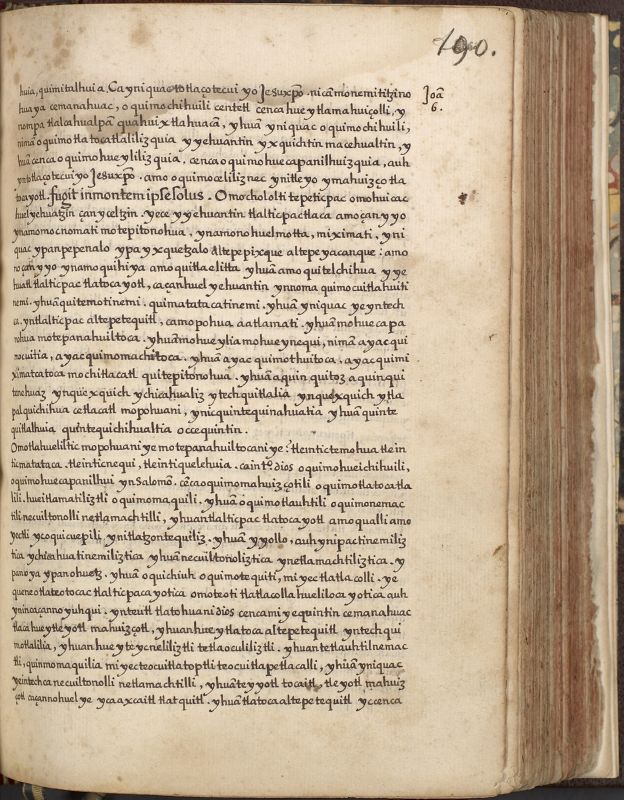 190.
Joã
6.
huia, quimitalhuia. Ca yn iquac totlaçotecuiyo Jesuxpõ. nicã monemitizino
huaya cemanahuac, o quimochihuili centetl cenca huey tlamahuiçolli, y
nompa tlalcahualpã quahuixtlahuacã, yhuã yniquac oquimochihuili,
nimã oquimotlatocatlalilizquia yyehuantin yxquichtin macehualtin, y
huã cenca oquimohueylilizquia. cenca oquimohuecapanilhuizquia, auh
yn totlaçotecuiyo Jesuxpõ. amo oquimoceliliznec yn itleyo ymahuizçotla
tocayotl. fugit in montem ipse solus. Omochololti tepeticpac omohuicac
huel yehuatzin çan yceltzin. yece yyehuantin tlalticpactlaca amo çan yyo
ynamomocnomati motepitonohua. ynamono huelmotta, miximati, yni
quac ypanpepenalo ypa yxquetzalo altepepixque altepeyacanque: amo
no çan yyo ynamo quihiya amo quitlaelitta yhuã amo quitelchihua yye
huatl tlalticpac tlatocayotl, ca çan huel yehuantin ynnoma quimocuitlahuiti
nemi. yhuã quitemotinemi. quimatatacatinemi. yhuã yniquac ye yntech
ca. yn tlalticpac altepetequitl, ca mopohua aatlamati. yhuã mohuecapa
nohua motepanahuiltoca. yhuã mohueylia mohueynequi, nimã ayac qui
nocuitia, ayac quimomachitoca. yhuã ayac quimothuitoca. ayac quimi
ximatcatoca mochitlacatl quitepitonohua. yhuã aquin quitoz aquin qui
tenehuaz ynquexquich ychicahualiz ytechquitlalia ynquexquich ytla
pal quichihua cetlacatl mopohuani, ynic quintequinahuatia yhuã quinte
quitlalhuia quintequichihualtia occequintin.
Omotlahueliltic mopohuani ye motepanahuiltocani ye: tleintictemohua tlein
ticmatataca. tleinticnequi, tleintiquelehuia. ca in tõ. dios oquimohueichihuili,
oquimohuecapanilhui yn Salomõ. cẽca oquimomahuizçotili oquimotlatocatla
lili. huei tlamatiliztli oquimomaquili. yhuã oquimotlauhtili oquimonemac
tili necuiltonolli netlamachtilli, yhuan tlalticpac tlatocayotl amo qualli amo
yectli ycoquicuepili, yn itlatzontequiliz. yhuã yyollo, auh yn ipactinemiliz
tica ychicahuatinemiliztica yhuã necuiltonoliztica ynetlamachtiliztica. y
panoya ypanohuetz. yhuã oquichiuh oquimotequiti, miyec tlatlacolli. ye
queneo tlateotocac tlalticpacayotica omoteoti tlatlacolla hueliloca yotica auh
ynin caçanno yuhqui. ynteutl tlatohuani dios cenca miyequintin cemanahuac
tlaca huey tleyotl mahuizçotl, yhuan huey tlatoca altepetequitl yntech qui
motlalilia, yhuan huey teycneliliztli tetlaoculiliztli. yhuan tetlauhtilnemac
tli, quinmomaquilia miyec teocuitlatoptli teocuitlapetlacalli, yhuã yniquac
ye intechca necuiltonolli netlamachtilli, yhuã teyyotl tocaitl, tleyotl mahuiz
çotl caçanno huel ye ycaaxcaitl tlatquitl. yhuã tlatoca altepetequitl yc cenca